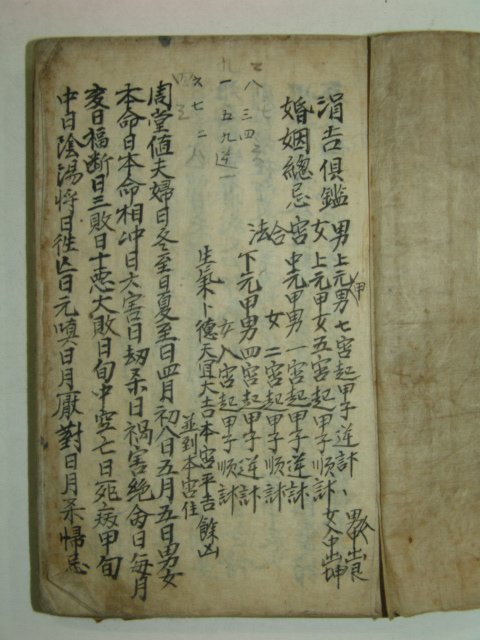 涓吉俱鑑
婚姻總忌
男女宮合法
上元甲男七宮起甲子逆計
上元甲女五宮起甲子順計
中元甲男一宮起甲子逆計
女二宮起甲子順計
下元甲男四宮起甲子逆計
女八宮起甲子順計
男入中出艮
女入中出坤
生氣卜德天宜大吉本宮平吉餘凶
並到本宮住
二八三四
九一五九逆一
六七二
周堂値夫婦日冬至日夏至日四月初八日五月五日男女
本命日本命相冲日大害日劫杀日禍害絶命日每月
亥日福断日三敗日十恶大敗日旬中空亡日死病甲旬
中日陰陽將日徃亡日元嗔日月厭對日月杀歸忌